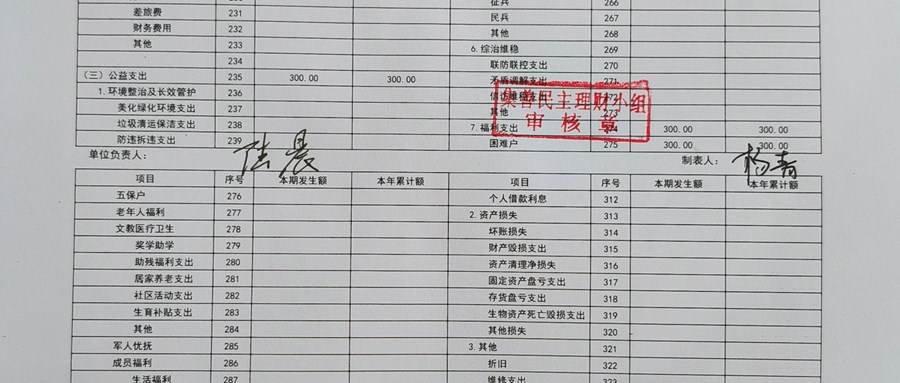 差旅费 231 征兵 266
财务费用 232 民兵 267
其他 233 其他 268
234 6.综治维稳 269
(三)公益支出 235 300.00 300.00 联防联控支出 270
1.环境整治及长效管护 236 矛盾调解支出 271
美化绿化环境支出 237 信访维稳支出 272
垃圾清运保洁支出 238 其他 273
防违拆违支出 239 7.福利支出 274 300.00 300.00
困难户 275 300.00 300.00
民主理财小组
审核章
单位负责人: 陆晨 制表人: 杨青
项目 序号 本期发生额 本年累计额 项目 序号 本期发生额 本年累计额
五保户 276 个人借款利息 312
老年人福利 277 2.资产损失 313
文教医疗卫生 278 坏账损失 314
奖学助学 279 财产毁损支出 315
助残福利支出 280 资产清理净损失 316
居家养老支出 281 固定资产盘亏支出 317
社区活动支出 282 存货盘亏支出 318
生育补贴支出 283 生物资产死亡毁损支出 319
其他 284 其他损失 320
军人优抚 285 3.其他 321
成员福利 286 折旧 322
生活福利 287 维修支出 323